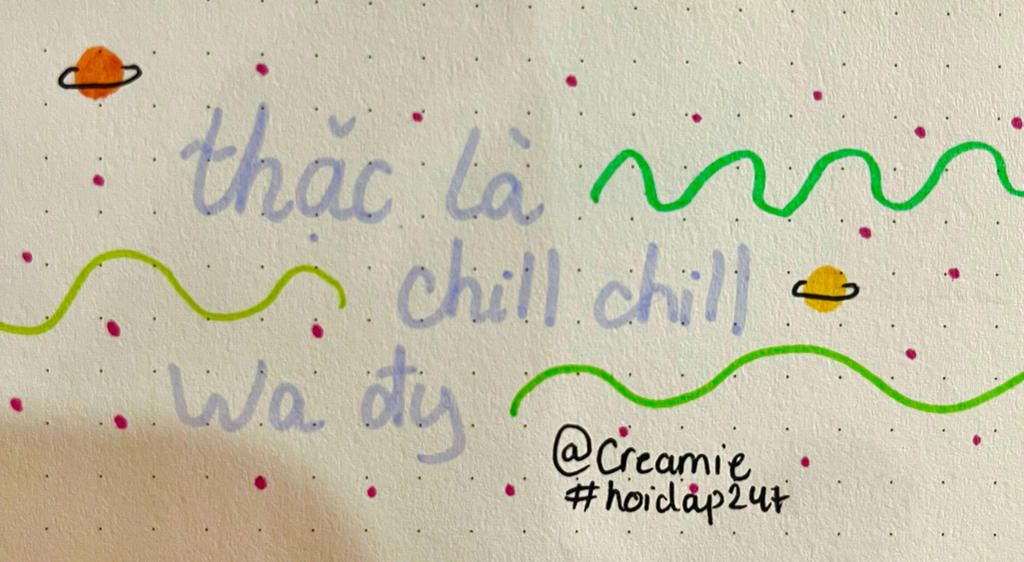 thặc là
chill chill
wa đy
@Creamie
#hoidap247